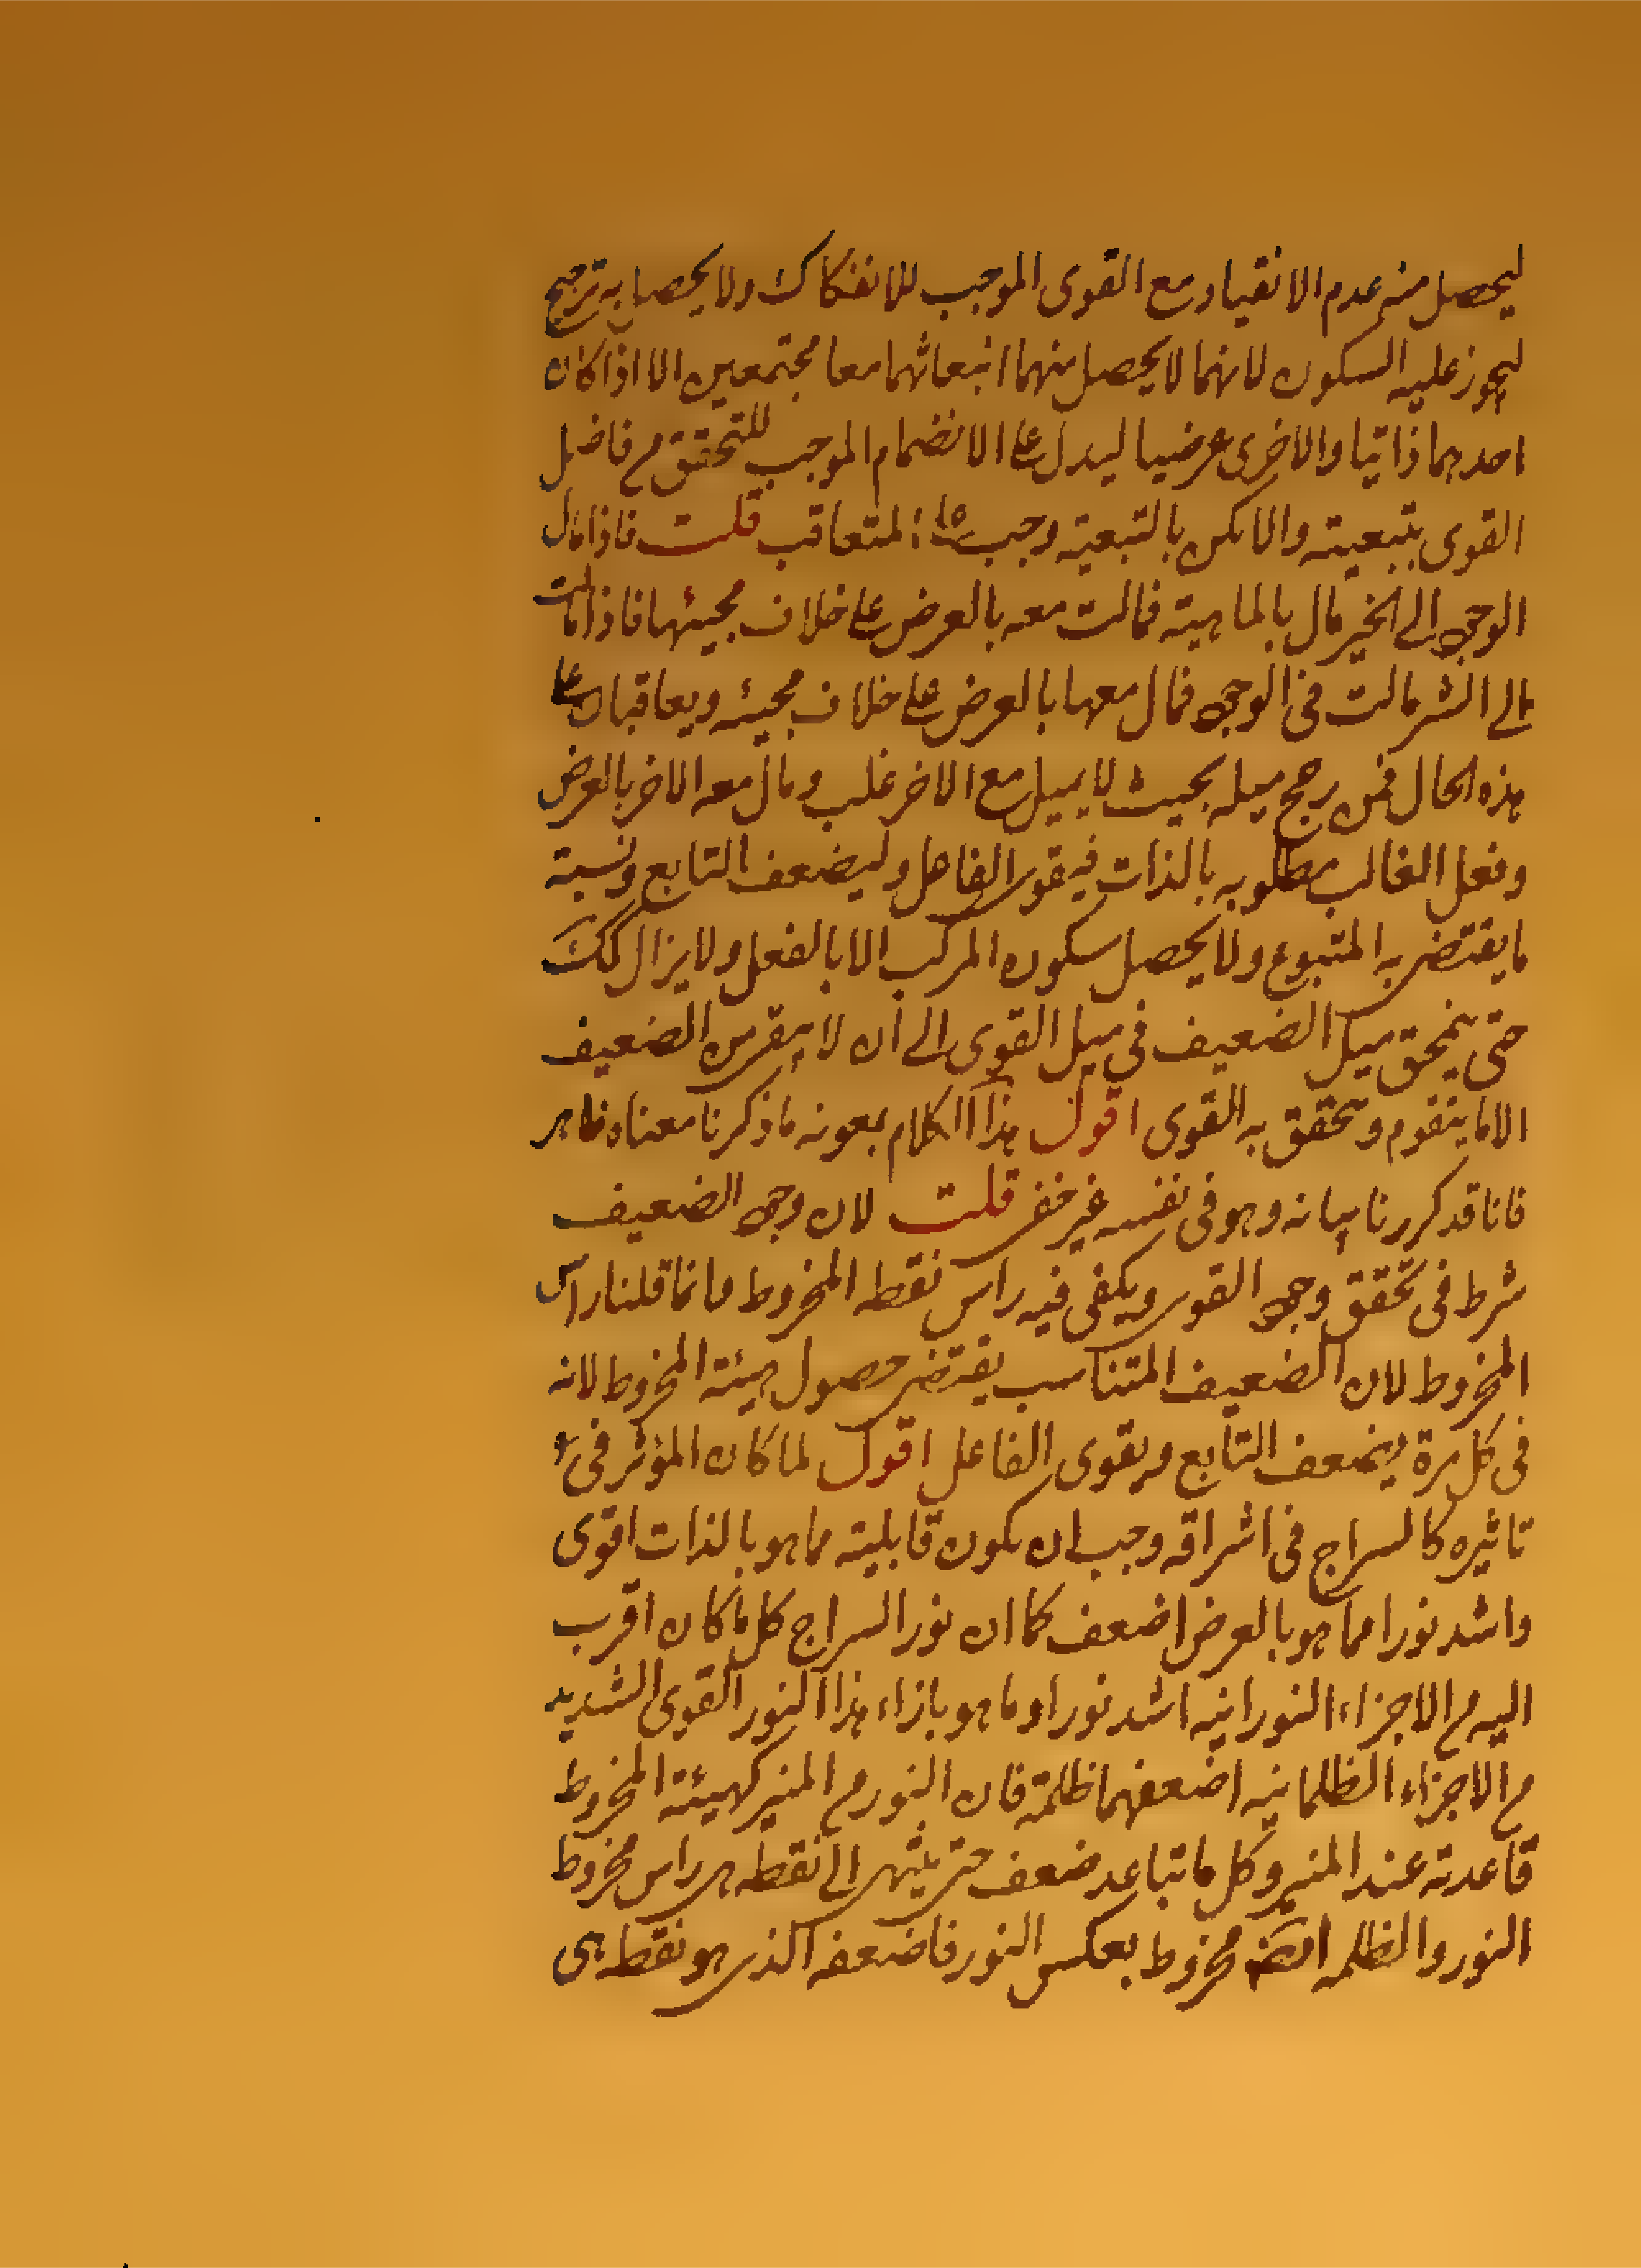 ليحصل منه عدم الانقياد مع القوى الموجب للانفكاك ولا يحصل به ترجيح
ليجوز عليه السكون لانهما لا يحصل منهما انبعاثهما معا مجتمعين الا اذا كان
احدهما ذاتيا والاخرى عرضيا ليدل على الانضمام الموجب للتحقق م فاضمحل
القوى بتبعيته والا يكن بالتبعية وجب المتعاقب قلت فاذا مال
الوجود الى الخير مال بالماهية فمالت معه بالعرض على خلاف مجيئها فاذا مالت
الى الشر مالت فى الوجود فمال معها بالعرض على خلاف مجيئه ويعاقبان على
هذه الحال فمن رجح ميله بحيث لا يميل مع الاخر غلب ومال معه الاخر بالعرض
وفعل الغالب مطلوبه بالذات فيقوى الفاعل وليضعف التابع ونسبة
ما يقتضى به المتبوع ولا يحصل سكون المركب الا بالفعل ولا يزال كك
حتى ينمحق ميل الضعيف فى ميل القوى الى ان لا يبقى من الضعيف
الا ما يتقوم ويتحقق به القوى اقول هذا الكلام بمعونه ما ذكرنا معناه ظاهر
فانا قد كررنا بيانه وهو فى نفسه غير خفى قلت لان وجود الضعيف
شرط فى تحقق وجود القوى ويكفى فيه راس نقطه المخروط وانما قلنا راس
المخروط لان الضعيف المتناسب يقتضى حصول هيئة المخروط لانه
فى كل مرة يضعف التابع ويقوى الفاعل اقول لما كان المؤثر فى
تاثيره كالسراج فى اشراقه وجب ان يكون قابلية ما هو بالذات اقوى
واشد نورا مما هو بالعرض اضعف كما ان نور السراج كل ما كان اقرب
اليه م الاجزاء النورانيه اشد نورا وما هو بازاء هذا النور القوى الشديد
م الاجزاء الظلمانيه اضعفهما ظلمة فان النور م المنير كهيئة المخروط
قاعدته عند المنير وكل ما تباعد ضعف حتى ينتهى الى نقطه هى راس مخروط
النور والظلمه ايضا مخروط بعكس النور فاضعفه الذى هو نقطه هى